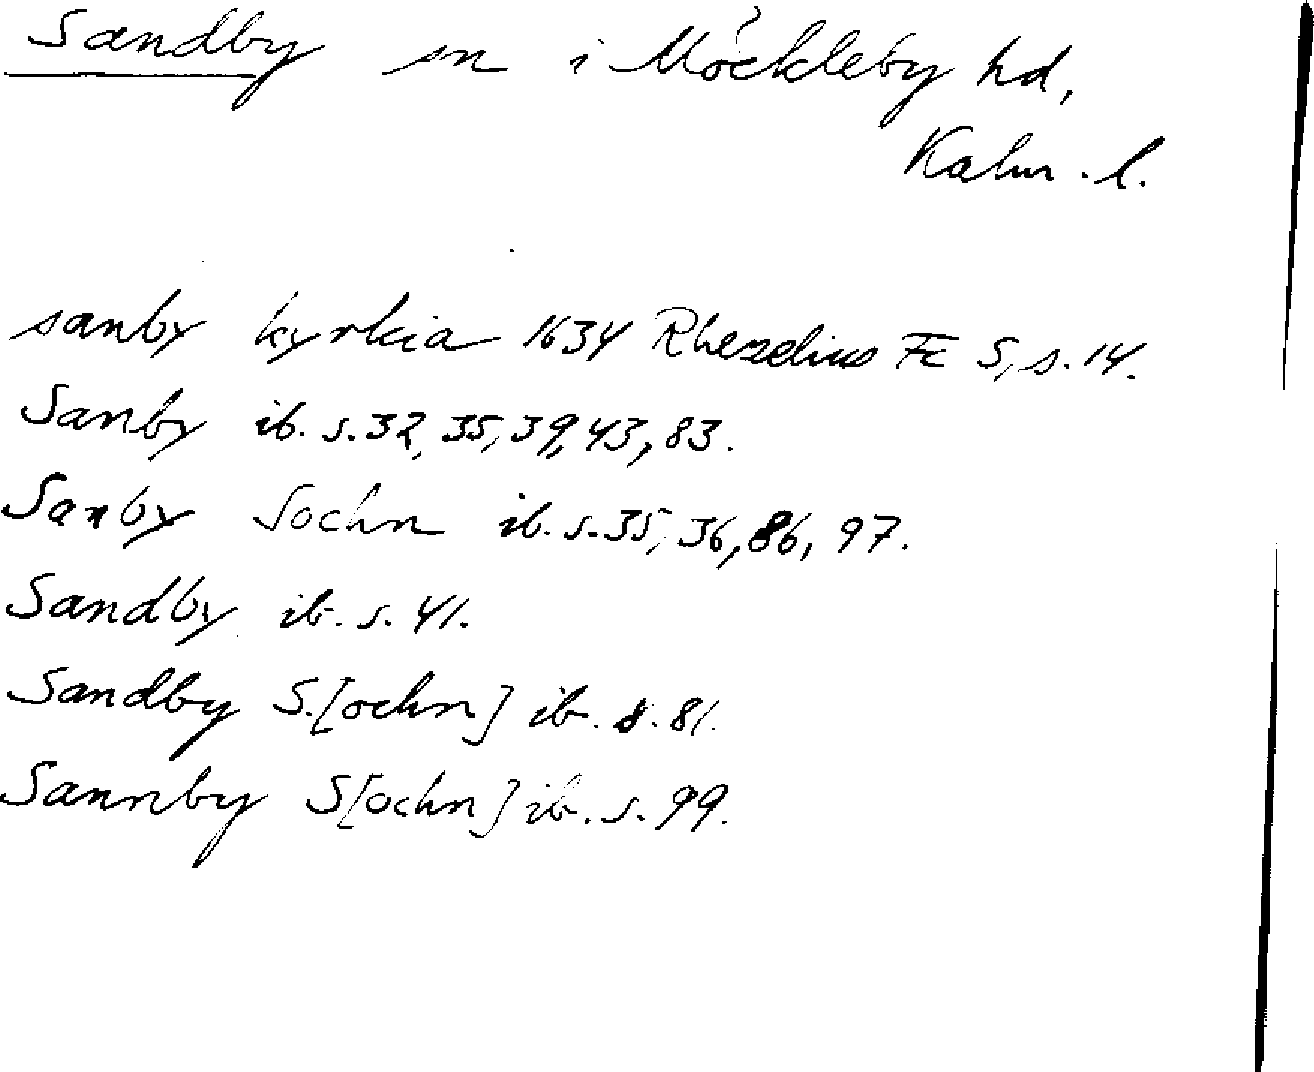 Sandby sn i Möckleby hd,
Kalm. l.
sanby kyrkia 1634 Rhezelius Fc 5, s. 14.
Sanby ib. s. 32, 35, 39, 43, 83.
Sanby Sochn ib. s. 35, 36, 86, 97.
Sandby ib. s. 41.
Sandby S.[ochn] ib. s. 81.
Sannby S[ochn] ib. s. 99.